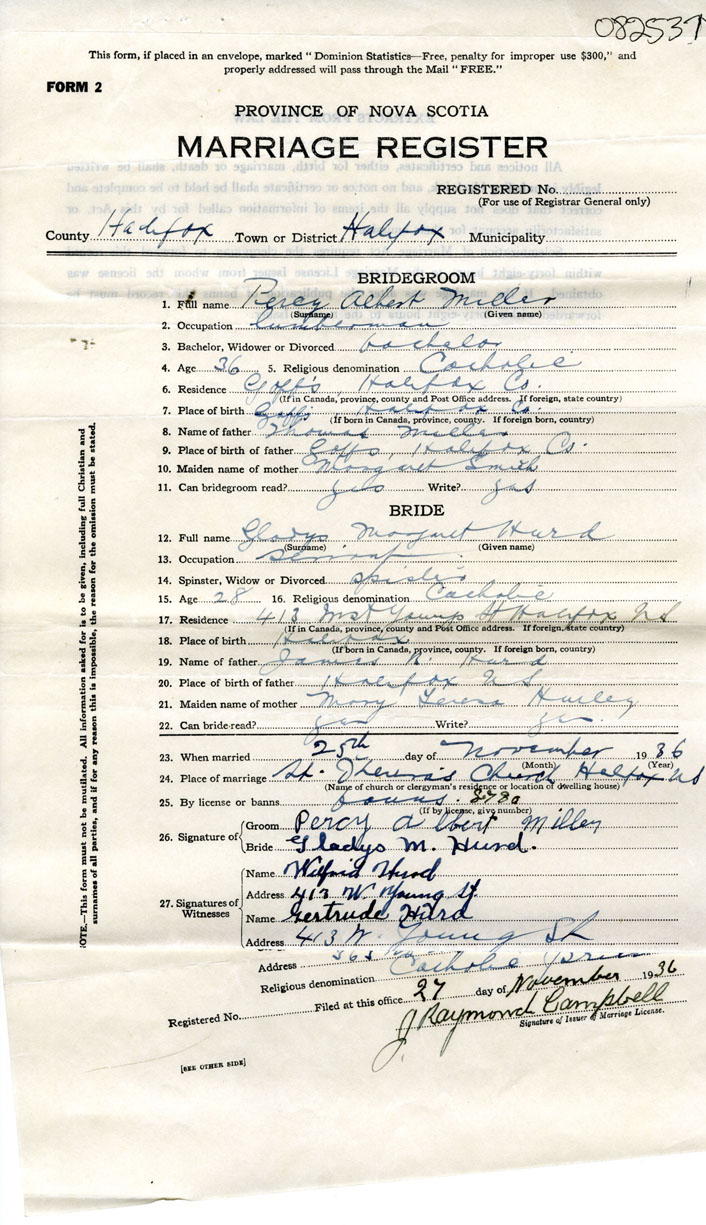 082537
This form, if placed in an envelope, marked "Dominion Statistics—Free, penalty for improper use $300," and
properly addressed will pass through the Mail "FREE."
FORM 2
PROVINCE OF NOVA SCOTIA
MARRIAGE REGISTER
REGISTERED No.
(For use of Registrar General only)
County Halifax Town or District Halifax Municipality
BRIDEGROOM
1. Full name Percy Albert Miller
(Surname) (Given name)
2. Occupation Lumberman
3. Bachelor, Widower or Divorced bachelor
4. Age 36 5. Religious denomination Catholic
6. Residence Goff's, Halifax Co.
(If in Canada, province, county and Post Office address. If foreign, state country)
7. Place of birth Goffs Halifax Co.
(If born in Canada, province, county. If foreign born, country)
8. Name of father Thomas Miller
9. Place of birth of father Goffs, Halifax Co.
10. Maiden name of mother Margaret Smith
11. Can bridegroom read? yes Write? yes
BRIDE
12. Full name Gladys Margaret Hurd
(Surname) (Given name)
13. Occupation Servant
14. Spinster, Widow or Divorced
15. Age 28 16. Religious denomination Catholic
17. Residence 413 Young St Halifax N S
(If in Canada, province, county and Post Office address. If foreign, state country)
18. Place of birth Halifax
(If born in Canada, province, county. If foreign born, country)
19. Name of father James Hurd
20. Place of birth of father Halifax N S
21. Maiden name of mother Mary Teresa Hurley
22. Can bride read? yes Write? yes
23. When married 25th day of November 1936
(Month) (Year)
24. Place of marriage St. Theresa's Church Halifax NS
(Name of church or clergyman's residence or location of dwelling house)
25. By license or banns banns.
(If by license, give number)
26. Signature of Groom Percy Albert Miller
Bride Gladys M. Hurd.
27. Signatures of Witnesses
Name Wilfrid Hurd
Address 413 W Young St.
Name Gertrude Hurd
Address 413 W. Young St
Address
Religious denomination Catholic
Registered No. Filed at this office 27 day of November 1936
J Raymond Campbell
Signature of Issuer of Marriage License.
[SEE OTHER SIDE]
NOTE.—This form must not be mutilated. All information asked for is to be given, including full Christian and
surnames of all parties, and if for any reason this is impossible, the reason for the omission must be stated.